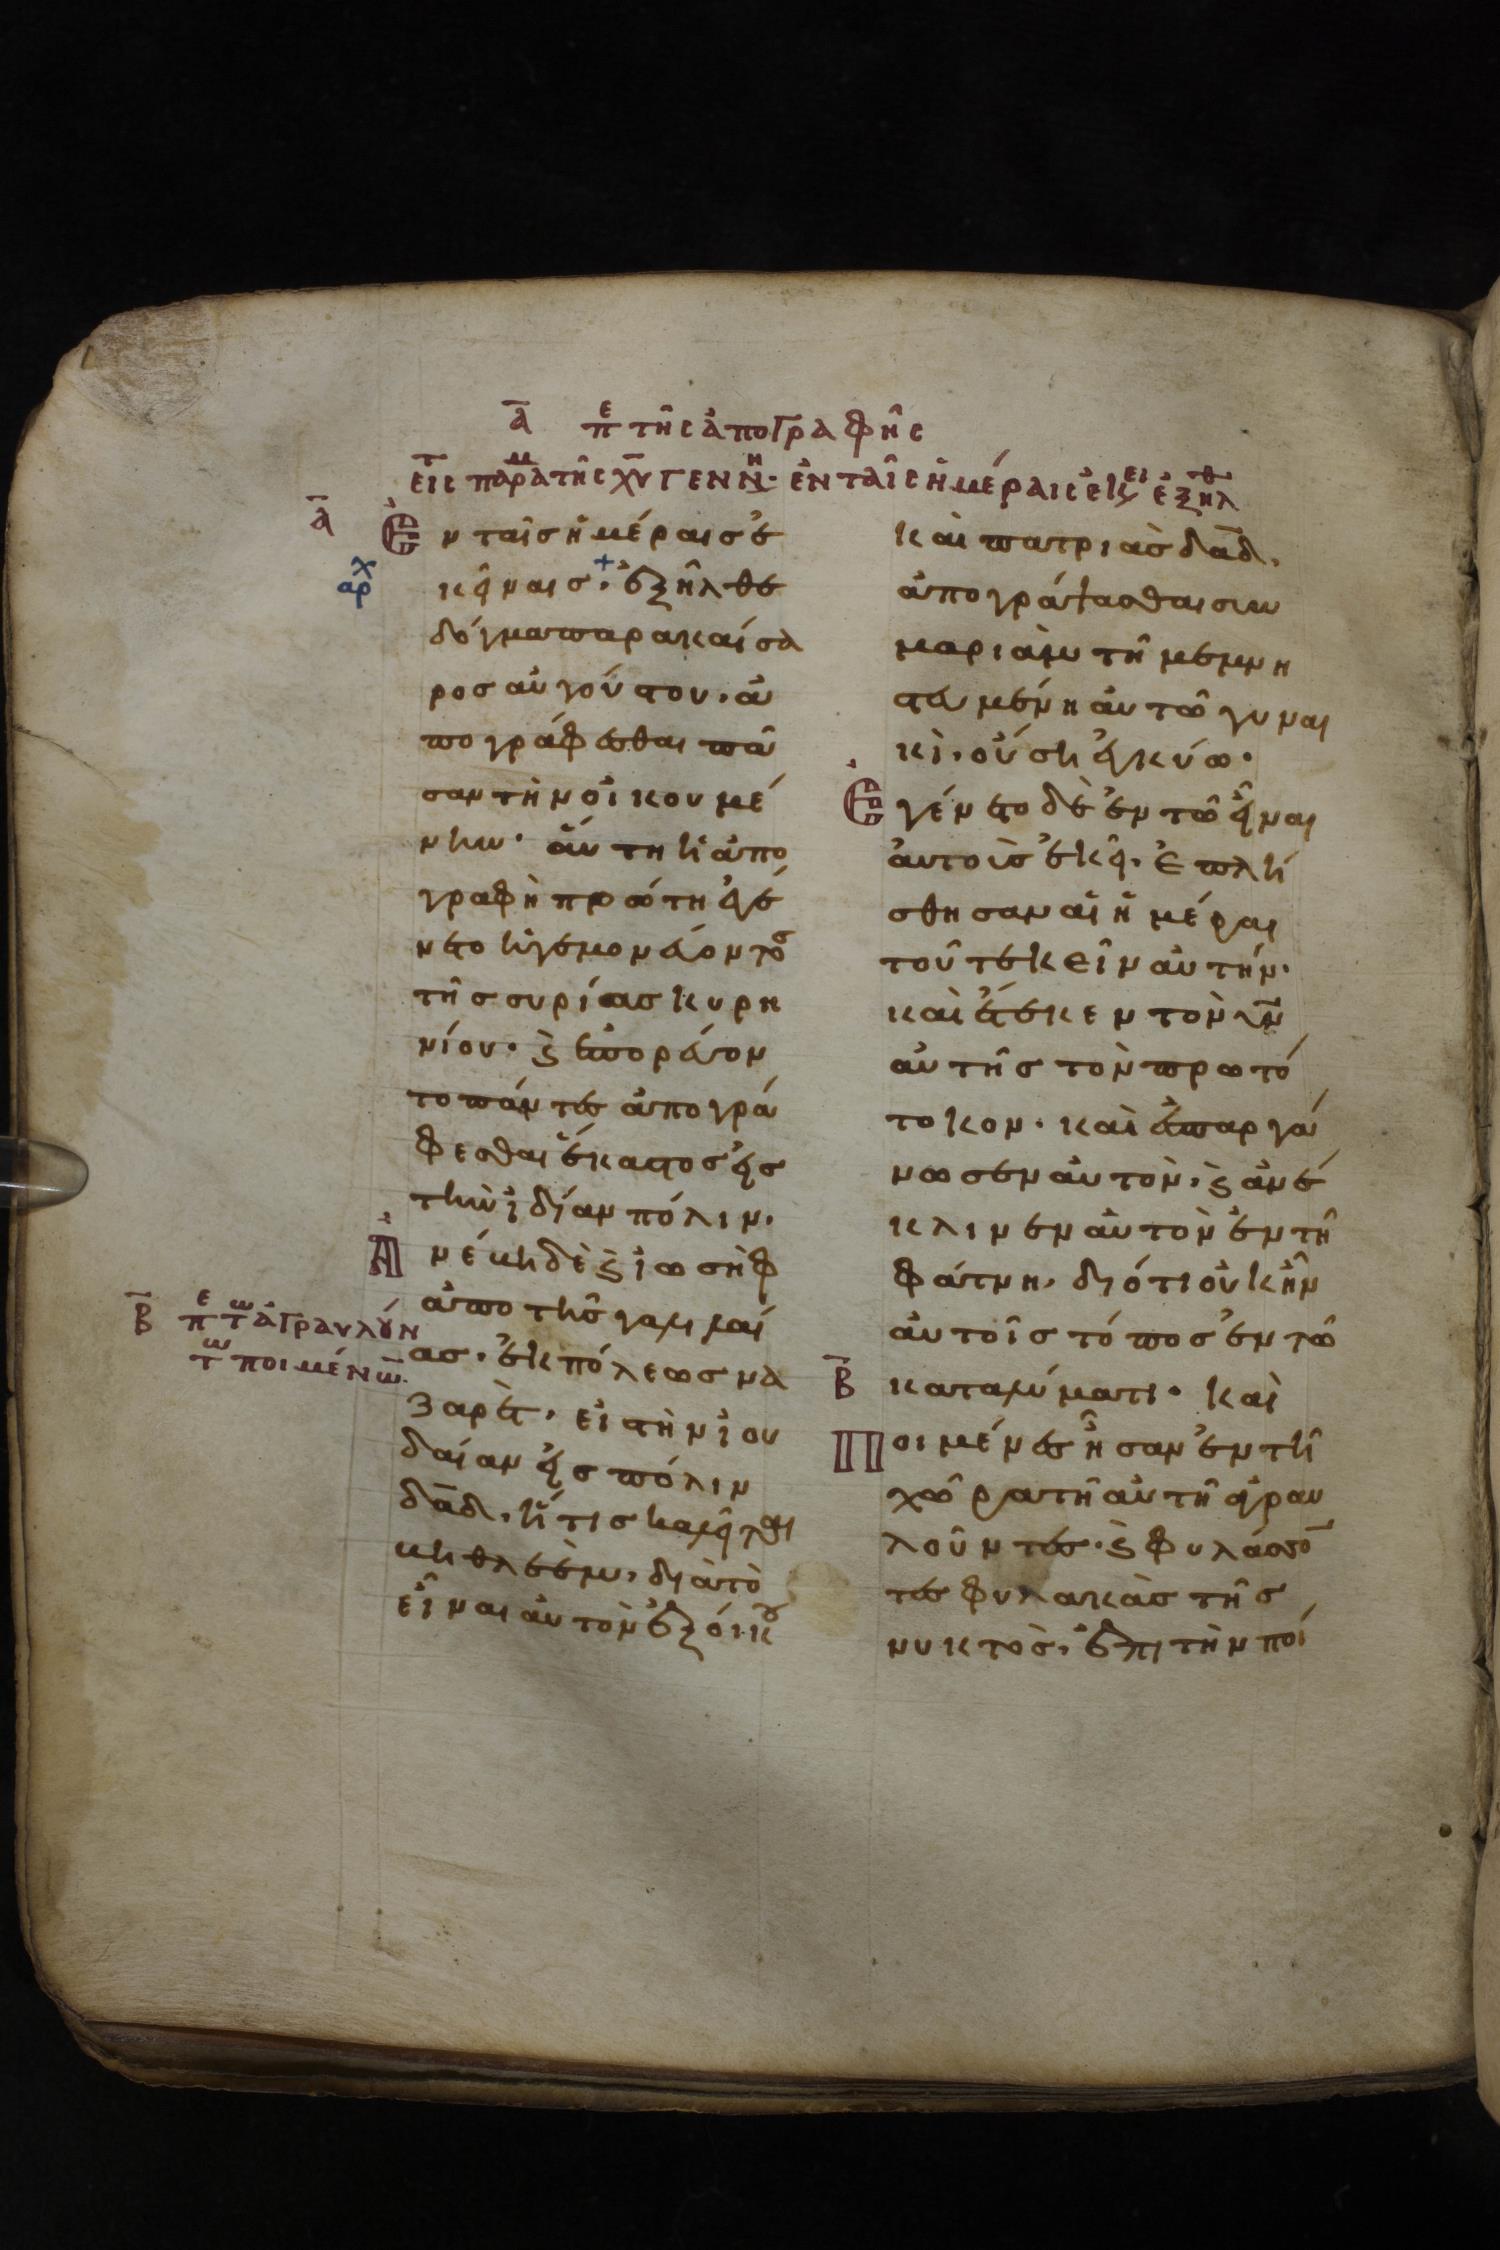 α̅ πε τῆς ἀπογραφῆς
εις τ παραμ τῆς χυ γεννη· ἐν ταῖς ἡμέραις ἐκει ἐξηλθ
α̅
Ἐν ταῖσ ἡμέραισ ἐ
αρχ
κείναισ· ἐξῆλθε
δόγμα παρα καίσα
ροσ αὐγούστου, ἀ
πογράφεσθαι πᾶ
σαν τὴν οἰκουμέ
νην· ἅυτη ἡ ἀπο
γραφὴ πρώτη ἐγέ
νετο ἡγεμονέυοντοσ
τῆσ συρίασ κυρη
νίου· ϗ ἐπορέυον
το πάντεσ ἀπογρά
φεσθαι ἕκαστοσ εἰσ
τὴν ἰδίαν πόλιν.
Ἀνέβη δὲ ϗ ἰωσὴφ
ἀπο τῆσ γαλιλαί
ασ, ἐκ πόλεωσ να
ζαρὲτ, εἰσ τὴν ἰου
δαίαν εἰσ πόλιν
δα̅δ, ἥτισ καλεῖται
βηθλεὲμ, διὰ τὸ
εἶναι ἀυτὸν ἐξ οἴκου
β̅ πε τω ἀγραυλούν
τω ποιμένω
καὶ πατριᾶσ δα̅δ.
ἀπογράψασθαι σὺν
μαριὰμ τῆ μεμνη
στευμένη ἀυτῶ γυναι
κὶ, ούση ἐγκύω·
Ἐγένετο δὲ ἐν τῶ εἶναι
ἀυτοὺσ ἐκεῖ, ἐπλή
σθησαν αἱ ἡμέραι
τοῦ τεκεῖν ἀυτήν·
καὶ ἔτεκεν τὸν υν̅
ἀυτῆσ τὸν πρωτό
τοκον· καὶ ἐσπαργά
νωσεν ἀυτὸν, ϗ ἀνέ
κλινεν ἀυτὸν ἐν τῆ
φάτνη, διότι οὐκ ἦν
ἀυτοῖσ τόποσ ἐν τῶ
β̅ καταλύματι· καὶ
Ποιμένεσ ἦσαν ἐν τῆ
χώρα τῆ ἀυτῆ ἀγραυ
λοῦντεσ· ϗ φυλάσσο̅
τεσ φυλακὰσ τῆσ
νυκτὸσ, ἐπι τὴν ποί